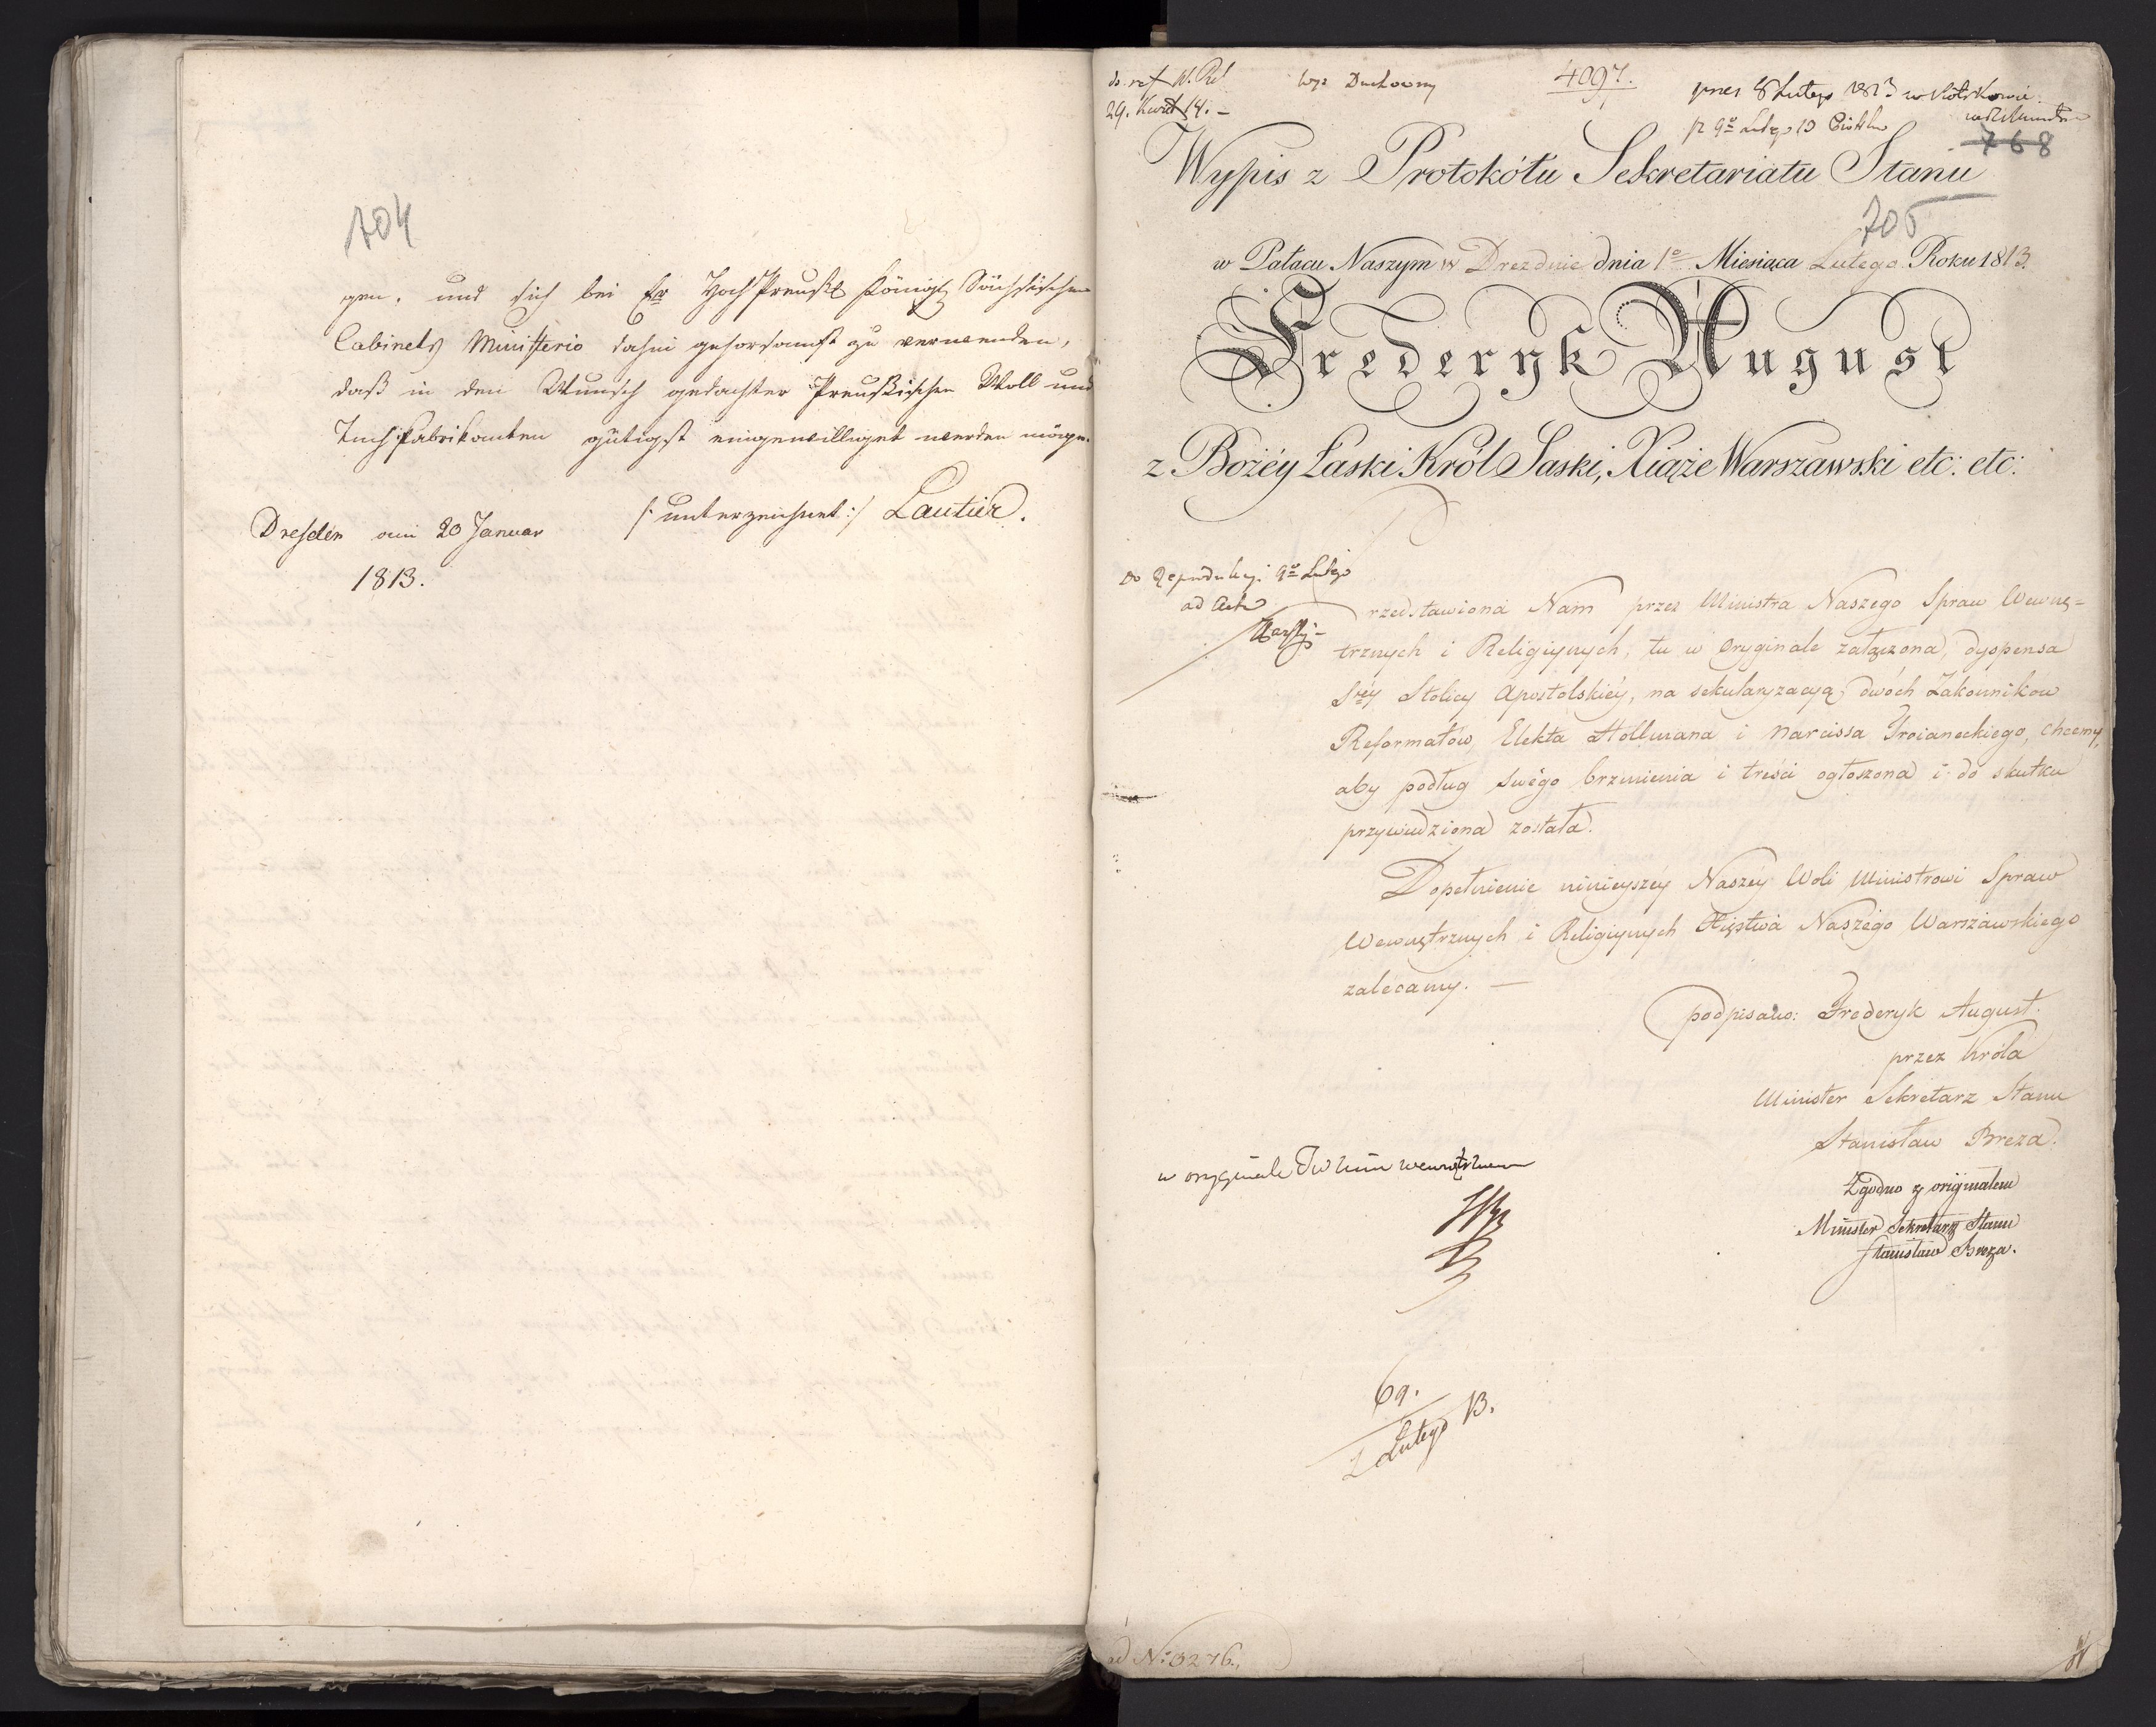 704
gen, und sich bei Ew Hoch Preussl. Königl Sächsischen
Cabinets Ministerio dahin gehorsamst zu verwenden,
daß in den Wunsch gedachter Preußischen Woll und
Tuch Fabrikanten gütigst eingewilliget werden möge.
/: unterzeichnet :/ Lautier.
Dresden am 20 Januar
1813.
29. Kwiet 14. –
Wyz Duchowny
4097.
pnes 8 Lutego 1813 w Piotrkowie
768
Wypis z Protokółu Sekretariatu Stanu
705
w Pałacu Naszym w Dreznie dnia 1o Miesiąca Lutego Roku 1813.
Frederyk August
z Bożéy Łaski Król Saski, Xiąże Warszawski etc: etc:
Do Reprodukcyi 9o Lutego
ad Acta
Przedstawiona Nam przez Ministra Naszego Spraw Wewnę=
trznych i Religiynych, tu w Oryginale załączona, dyspensa
Stéy Stolicy Apostolskiéy, na sekularyzacyą dwóch Zakonnikow
Reformatów, Elekta Hollmana i Narcissa Troianeckiego, chcemy,
aby podług swégo brzmienia i treści ogłoszona i do skutku
przywiedziona została.
Dopełnienie ninieyszéy Naszéy Woli Ministrowi Spraw
Wewnętrznych i Religiynych Xięstwa Naszégo Warszawskiego
zalécamy. —
podpisano: Frederyk August.
przez Króla
Minister Sekretarz Stanu
Stanisław Breza.
w oryginale
Zgodno z originalem
Minister Sekretarz Stanu
Stanisław Breza.
69.
2 Lutego 13.
ad No 3276.